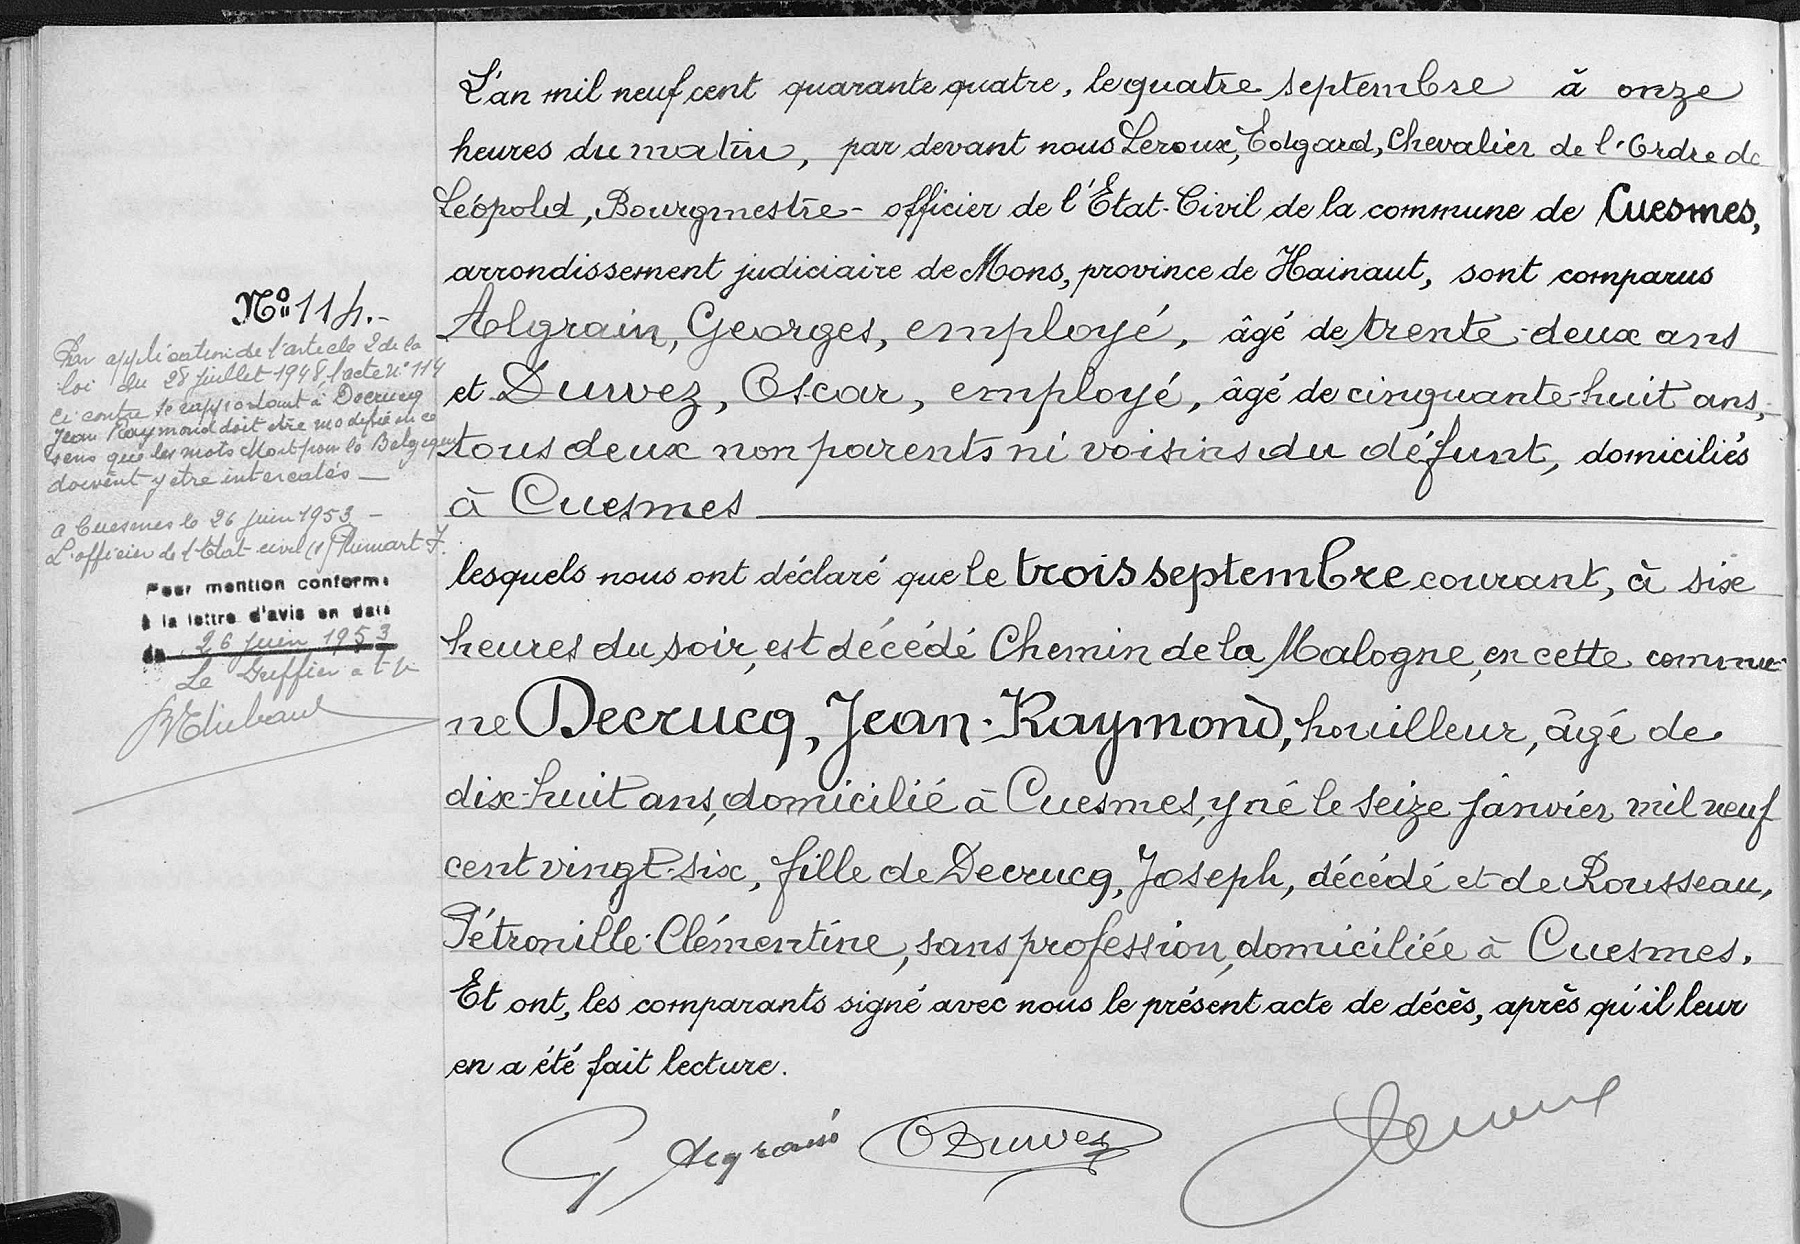 L'an mil neuf cent quarante quatre, le quatre septembre à onze
heures du matin, par devant nous Leroux, Edgard, Chevalier de l'Ordre de
Léopold, Bourgmestre - officier de l'Etat-Civil de la commune de Cuesmes,
arrondissement judiciaire de Mons, province de Hainaut, sont comparus
Algrain, Georges, employé, âgé de trente-deux ans
et Duvvez, Oscar, employé, âgé de cinquante-huit ans,
tous deux non parents ni voisins du défunt, domiciliés
à Cuesmes
lesquels nous ont déclaré que le trois septembre courant, à six
heures du soir, est décédé Chemin de la Malogne, en cette commu-
ne Decrucq, Jean-Raymond, houilleur, âgé de
dix-huit ans, domicilié à Cuesmes, y né le seize janvier mil neuf
cent vingt-six, fille de Decrucq, Joseph, décédé et de Rousseau,
Pétronille-Clémentine, sans profession, domiciliée à Cuesmes.
Et ont, les comparants signé avec nous le présent acte de décès, après qu'il leur
en a été fait lecture.
G Algrain
O Duvvez
Leroux
No 114.-
Par application de l'article 2 de la
loi du 28 juillet 1948, l'acte n° 114
ci contre se rapportant à Decrucq
Jean Raymond doit être modifié en ce
sens que les mots Mort pour la Belgique
doivent y être intercalés —
a Cuesmes le 26 juin 1953 -
L'officier de l'Etat-civil (s) Plumart F.
Pour mention conforme
à la lettre d'avis en date
du 26 juin 1953
Le Greffier